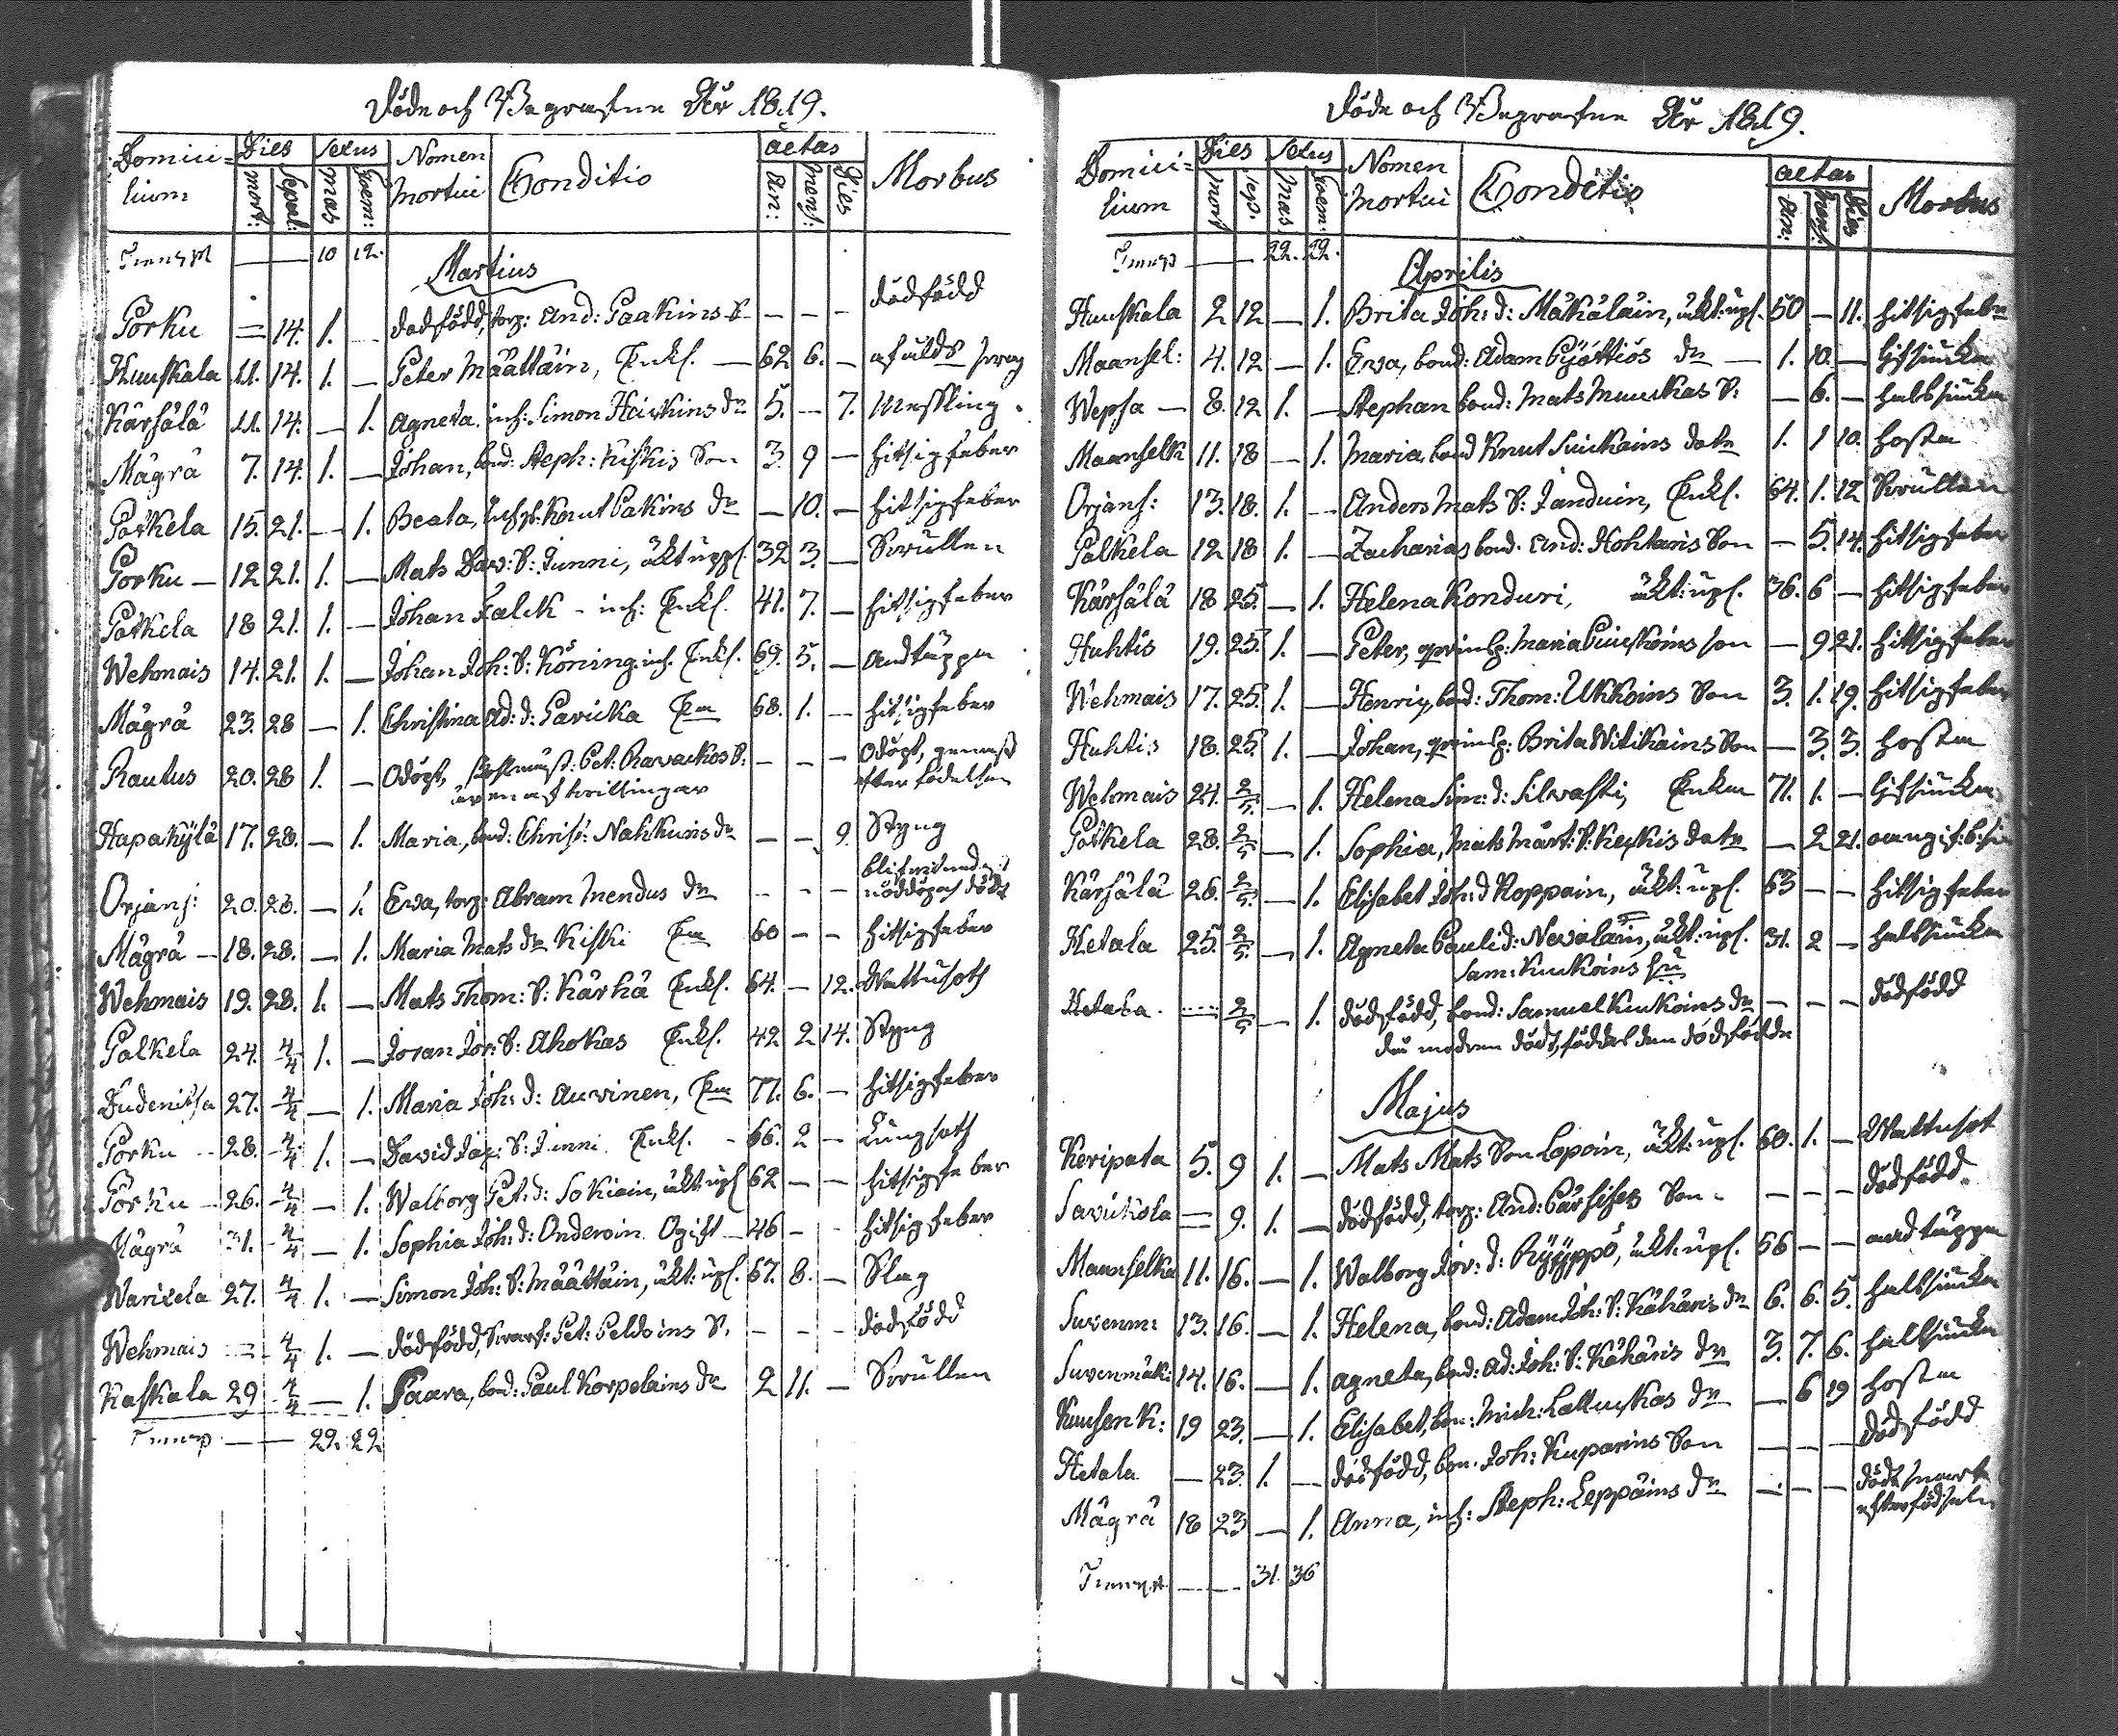 Döde och Begrafne År 1819.
Domici= Dies Sexus Nomen Conditio aetas Morbus
lium mort: Sepul: mas foem: mortui An: mens: Dies
Transp — 10 12.
Martius
Porku = 14. 1. — dödfödd, torp: And: Paakins S. — — — dödfödd
Kuuskala 11. 14. 1. — Peter Määttäin, Enkl. — 62 6. —
Kärsälä 11. 14. — 1. Agneta, inh: Simon Haikins dr 5. — 7. Messling.
Mägrä 7. 14. 1. — Johan, bond: Steph: Kiskis Son 3. 9 — hitsigfeber
Potkela 15. 21. — 1. Beata, Knut Pakins dr — 10. — hitsigfeber
Porku — 12 21. 1. — Mats Dav: S: Junni, äkt: 32 3. — Svullen
Potkela 18 21. 1. — Johan Falck — inh: Enkl. 41. 7. — hitsigfeber
Wehmais 14. 21. 1. — Johan Joh: S: Köning inh. Enkl. 69. 5. — Andtäppa
Mägrä 23. 28 — 1. Christina Ad: d: Pavicka Ena 68. 1. — hitsigfeber
Rautus 20. 28 1. — Odöpt, Pet: Ravackos S: — — — Odöpt, genast
även af trillingar efter födelsen
Hapakÿlä 17. 28. — 1. Maria, bond: Christ: Nahkuris dr — — 9. Styng
Orjans: 20. 28. — 1. Ewa, torp: Abram Mendus dr — — — nöddöpt och dödt
Mägrä — 18. 28. — 1. Maria Mats dr Kiski Ena 60 — — hitsigfeber
Wehmais 19. 28. 1. — Mats Thom: S: Kärhä Enkl. 64. — 12. Wattusoth
Palkela 24. 4/4 1. — Joran Jör: S: Ahokas Enkl. 42 2 14. Styng
Dudenitsa 27. 4/4 — 1. Maria Joh: d: Auvinen, Ena 77. 6. — hitsigfeber
Porku — 28. 4/4 1. — David S: Junni Enkl. — 66. 2 — Lungsoth
Porku — 26. 4/4 — 1. Walborg Pet: d: Sokiain, äkt: upl 62 — — hitsigfeber
Mägrä 31. 4/4 — 1. Sophia Joh: d: Onderoin Ogift — 46 — — hitsigfeber
Warixela 27. 4/4 1. — Simon Joh: S: Määttäin, äkt: upl. 67. 8. — Slag
Wehmais = 4/4 1. — dödfödd, Svarf: Pet: Peldoins S. — — — dödfödd
Kaskala 29 4/4 — 1. Saara, bond: Paul Korpelains dr 2 11. — Svullen
Transp — 22. 22
Döde och Begrafne År 1819.
Domici= Dies Sexus Nomen Conditio aetas Morbus
lium mort sep. Mas foem: mortui An: mens: Dies
Transp — 22. 22.
Aprilis
Kuuskala 2 12 — 1. Brita Joh: d: Mäkäläin, äkt: upl. 50 — 11. hitsigfeber
Maansel: 4. 12 — 1. Ewa, bond: Adam Pÿöttiös dr — 1. 10. —
Wepsa — 8. 12 1. — Stephan bond: Mats Muuskas S: — 6. — halssiuka
Maanselk 11. 18 — 1. Maria, bond Knut Suikains dotr 1. 1 10. hosta
Orjans: 13. 18. 1. — Anders Mats S: Janduin, Enkl. 64. 1. 12 Svullen
Palkela 12 18 1. — Zacharias bond: And: Hohtaris Son — 5. 14. hitsigfeber
Kärsälä 18 25. — 1. Helena Konduri, äkt: upl. 36. 6 — hitsigfeber
Huhtis 19. 25. 1. — Peter, Maria son — 9 21. hitsigfeber
Wehmais 17. 25. 1. — Henric, bond: Thom: Ukkoins Son 3. 1. 19. hitsigfeber
Huhtis 18. 25. 1. — Johan, Brita Witikains Son — 3. 3. hosta
Wehmais 24. 2/5. — 1. Helena Sim: d: Silvasti, Enka 71. 1. —
Potkela 28. 2/5 — 1. Sophia, Mats Mårt: S: Keckis dotr — 2 21.
Kärsälä 26. 2/5. — 1. Elisabet Joh: d Roppoin, äkt: upl. 63 — — hitsigfeber
Hetala 25. 2/5. — 1. Agneta Pauli d: Nevalain, äkt: upl. 31. 2 — halssiuka
Sam: Kukoins hu
Hetala — 2/5 — 1. dödfödd, bond: Samuel Kukoins dr — — — dödfödd
då modren dödt, föddes den dödfödde
Majus
Keripata 5. 9 1. — Mats Mats Son Lopoin, äkt: upl. 60. 1. — Wattusot
Savikola = 9. 1. — dödfödd, torp: And: Son — — — — dödfödd.
Maanselka 11. 16. — 1. Walborg Jör: d: Ryÿppö, äkt: upl. 56 — — andtäppa
Suvenm: 13. 16. — 1. Helena, bond: Adam Joh: S: Kähäris dr 6. 6. 5. halssiuka
Suvenmäk: 14. 16. — 1. Agneta, bond: Ad: Joh: S: Kähäris dr 3. 7. 6. halssiuka
Kuusenk: 19 23. — 1. Elisabet, bon: Mich: Lattuskas dr — 6 19 hosta
Hetala — 23. 1. — dödfödd, bon. Joh: Kuparins Son — — — dödfödd
Mägrä 18 23 — 1. Anna, inh: Steph: Leppäins dr — — — dödt snart
efter födseln
Transp — 31 36